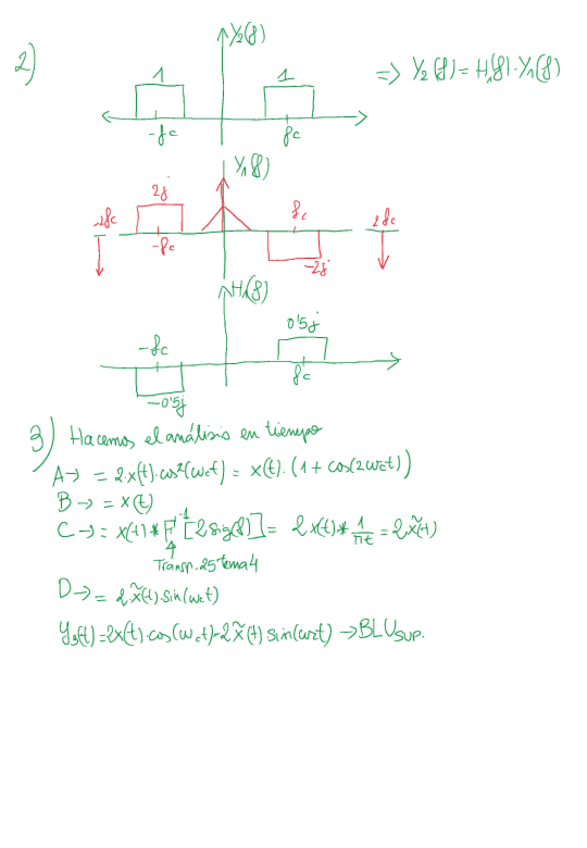 2)
Y₂(f)
1 1
=> Y₂(f) = H₁(f)·Y₁(f)
-fc fc
Y₁(f)
2j
-2fc fc 2fc
-fc
-2j
H₁(f)
0'5j
-fc
fc
-0'5j
3) Hacemos el análisis en tiempo
A→ = 2·x(t)·cos²(ωct) = x(t)·(1 + cos(2ωct))
B→ = x(t)
C→ = x(t) * F⁻¹[2sig(f)] = 2x(t) * 1/πt = 2x̃(t)
Transp. 25 tema 4
D→ = 2x̃(t)·sin(ωct)
y₃(t) = 2x(t)·cos(ωct) - 2x̃(t) sin(ωct) → BLU SUP.